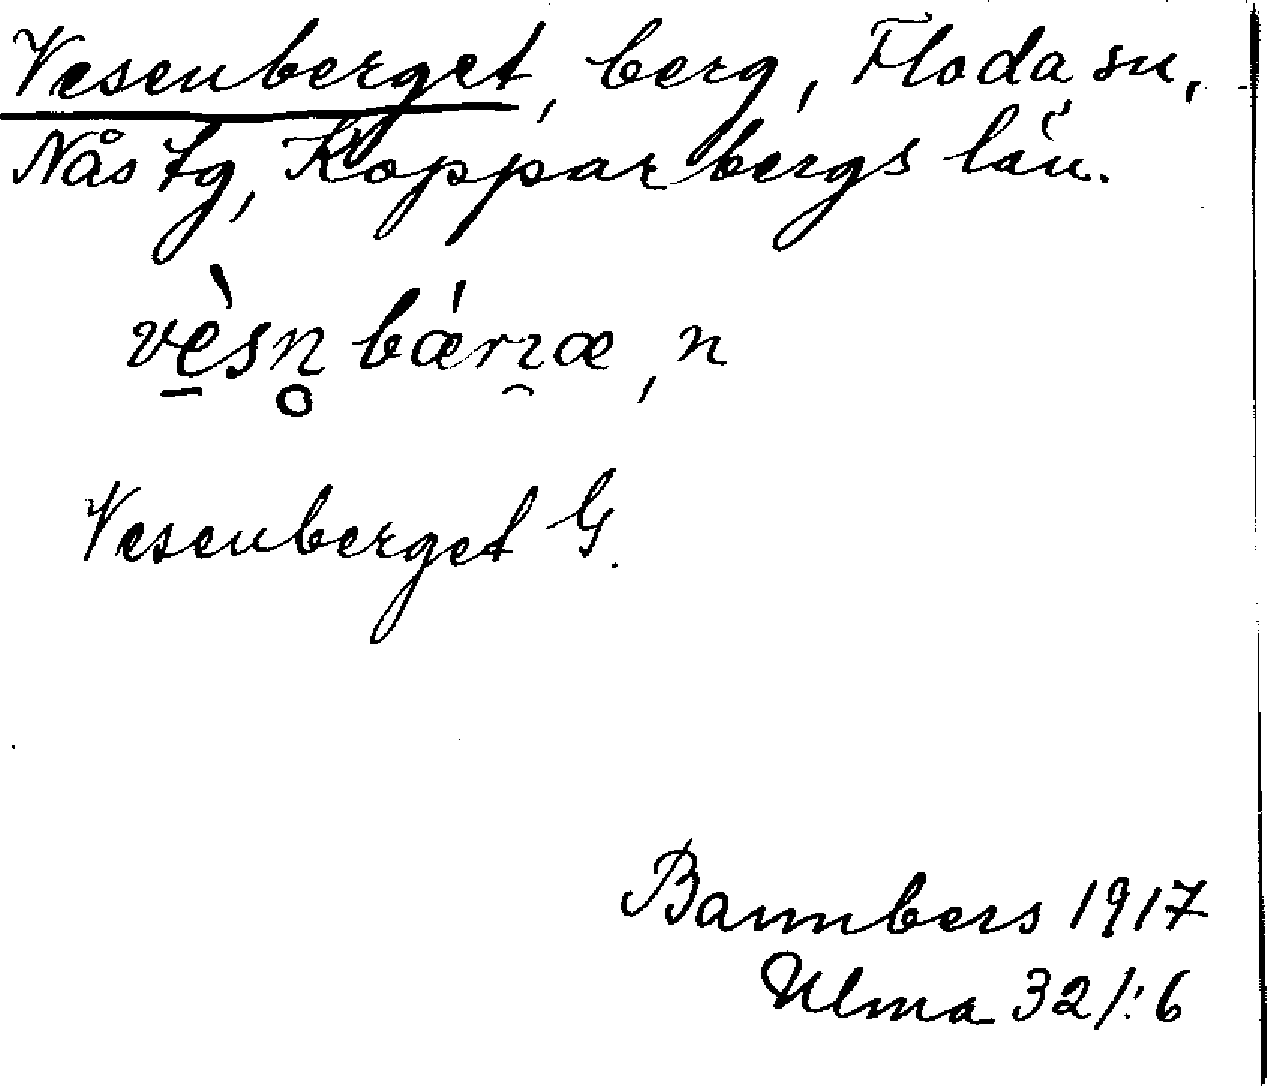 Vesenberget, berg, Floda sn,
Nås tg, Kopparbergs län.
vè̱sn̥ bǽrıæ, n
Vesenberget G.
Bannbers 1917
Ulma 321:6